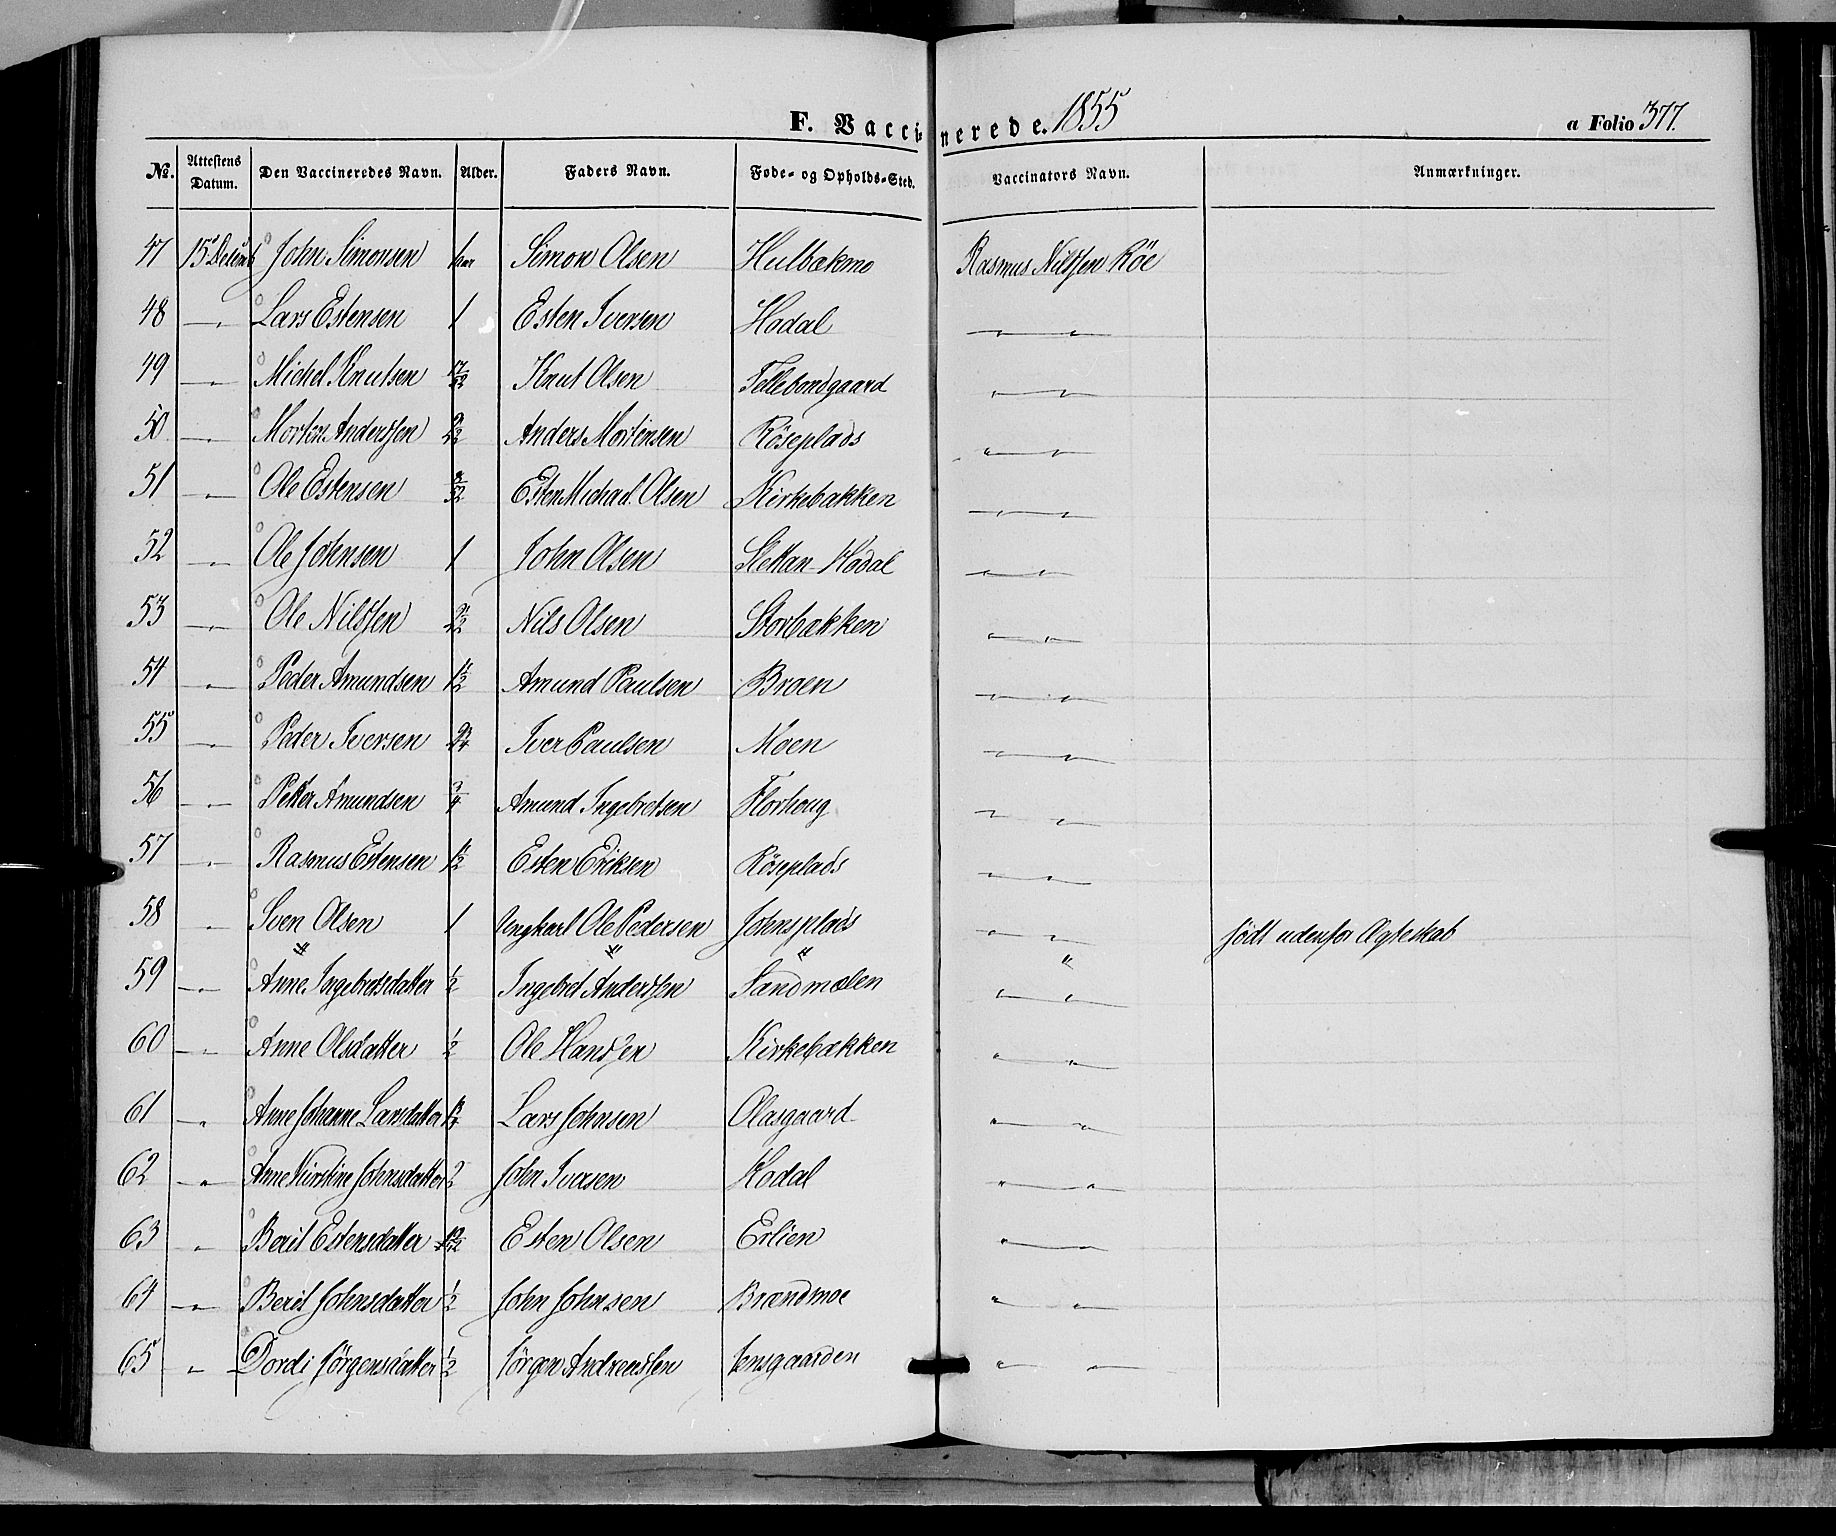 F. Vaccinerede. 1855 a Folio 377.
No. Attestens Datum. Den Vaccineredes Navn. Alder. Faders Navn. Føde- og Opholds-Sted. Vaccinators Navn. Anmærkninger.
47 15 Decemb John Simonsen 1 aar Simon Olsen Hulbækmo Rasmus Nilssen Röe
48 —„— Lars Estensen 1 Esten Iversen Hodal —„—„—
49 —„— Michel Knutsen Knut Olsen Tellebondgaard —„—„—
50 —„— Morten Anderssen Anders Mortensen Röseplads —„—„—
51 —„— Ole Estensen Esten Michael Olsen Kirkebakken —„—„—
52 —„— Ole Johnsen 1 John Olsen Slettan Hodal —„—„—
53 —„— Ole Nilssen Nils Olsen Storbækken —„—„—
54 —„— Peder Amundsen 1 1/2 Amund Paulsen Broen —„—„—
55 —„— Peder Iversen Iver Paulsen Moen —„—„—
56 —„— Petter Amundsen 3/4 Amund Ingebretsen Florhoug —„—„—
57 —„— Rasmus Estensen 1 1/2 Esten Eriksen Röseplads —„—„—
58 „ Sven Olsen 1 Ungkarl Ole Pedersen Johnsplads —„—„— født udenfor Ægteskab
59 —„— Anne Ingebretsdatter 1/2 Ingebret Anderssen Sandmælen —„—„—
60 —„— Anne Olsdatter 1/2 Ole Hanssen Kirkebækken „ „—
61 —„— Anne Johanne Larsdatter Lars Johnsen Olasgaard „—„—
62 —„— Anne Kirstine Johnsdatter 2 John Iversen Hodal „—„—
63 „ Berit Estensdatter Esten Olsen Erlien „—„—
64 —„— Berit Johnsdatter 1/2 John Johnsen Brændmoe „ „—
65 „ Dordi Jörgensdatter 1/2 Jörgen Andreassen Jensgaarden „—„—